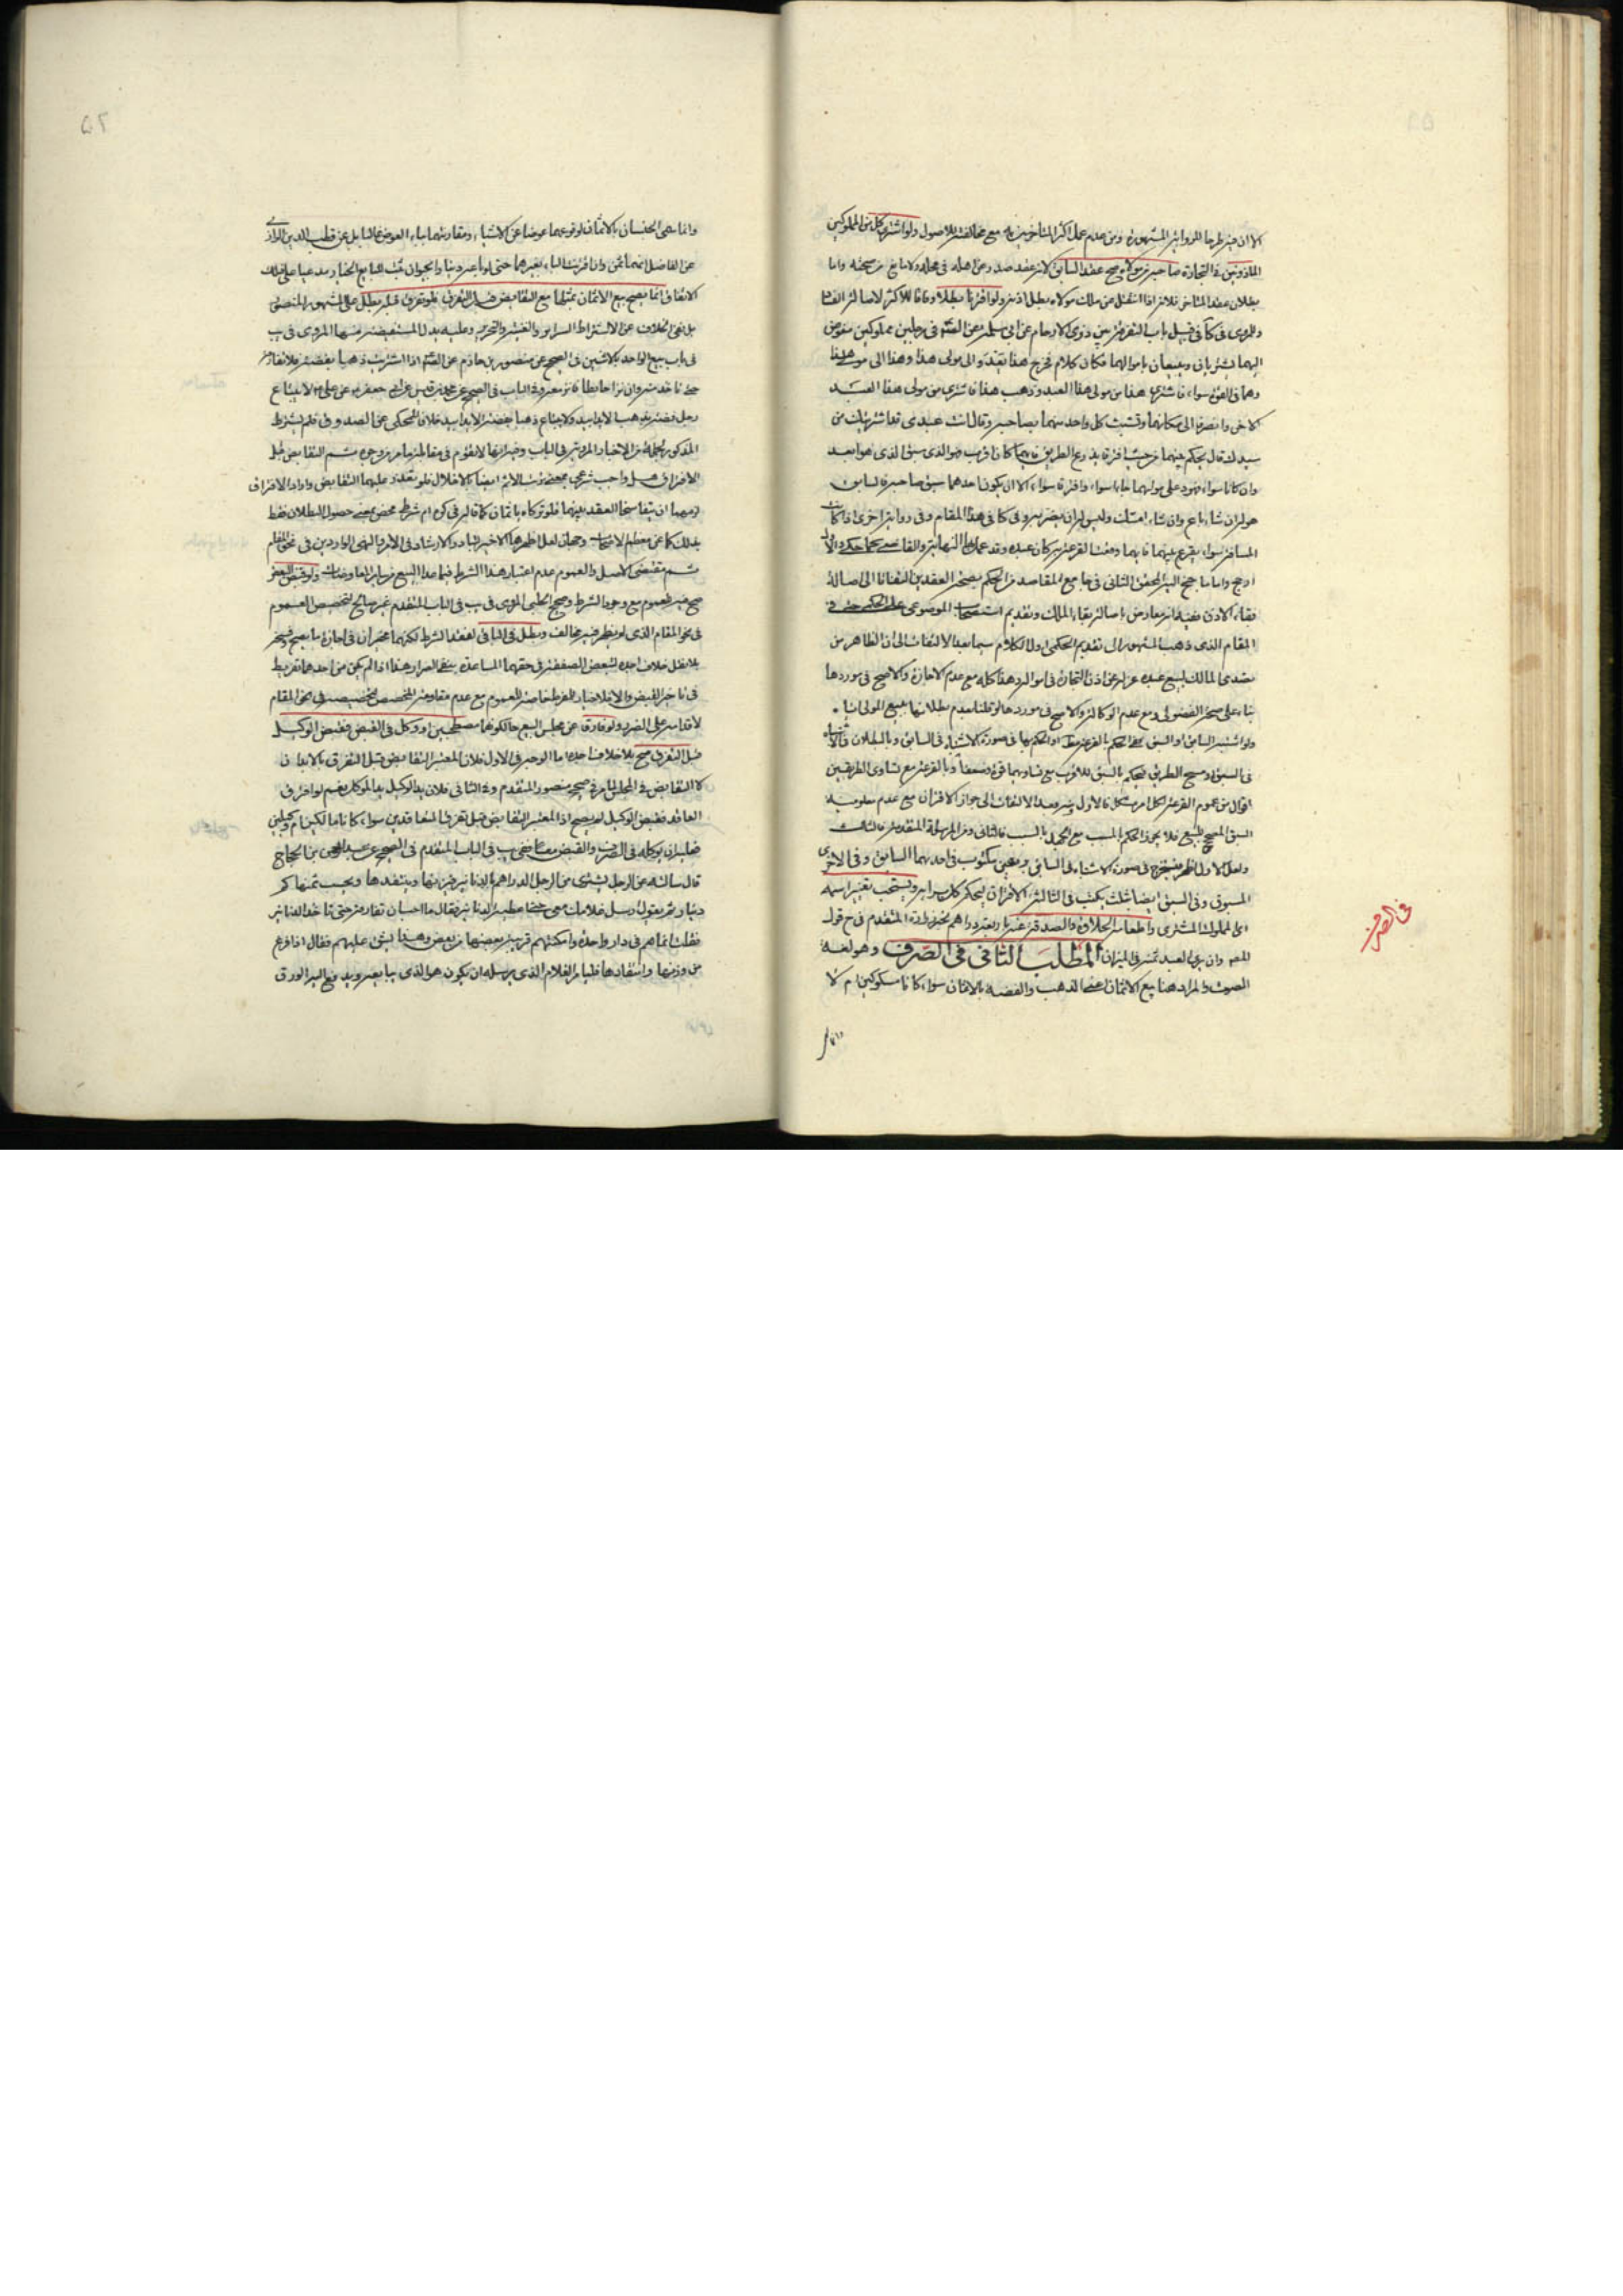 الا ان فيه طرحا للرواية المشهورة ومن عدم عمل اكثر المتاخرين به مع مخالفته للاصول ولو اشترى كل من المملوكين
الماذونين في التجارة صاحبه من مولاه صح عقد السابق لانه عقد صدر عن اهله في محله ولا مانع من صحته واما
بطلان عقد المتاخر فلانه اذا انتقل عن ملك مولاه بطل اذنه ولو اقترنا بطلا وفاقا للاكثر لاصالة
والمروى في كا في قبيل باب من ذوي الارحام عن ابي سلمة عن في رجلين مملوكين مفوض
اليهما يشتريان ويبيعان باموالهما فكان كلام فخرج هذا يعدو الى مولى هذا وهذا الى مولى هذا
وهما في القوة سواء فاشترى هذا من مولى هذا العبد وذهب هذا فاشترى من مولى هذا العبد
الاخر وانصرفا الى مكانهما وتشبث كل واحد منهما بصاحبه وقال انت عبدي قد اشتريتك من
سيدك قال يحكم بينهما من حيث افترقا يذرع الطريق فايهما كان اقرب فهو الذي سبق الذي هو ابعد
وان كانا سواء فهو رد على مواليهما جاءا سواء وافترقا سواء الا ان يكون احدهما سبق صاحبه فالسابق
هو له ان شاء باع وان شاء امسك وليس له ان يضر به وفي كا في هذا المقام وفي رواية اخرى اذا كانت
المسافة سواء يقرع بينهما فايهما وقعت القرعة به كان عبده وقد عمل النهاية والقاضي
بقاء الاذن معارض باصالة بقاء الملك وتقديم استصحاب الموضوعي على الحكمي حتى في
المقام الذي ذهب المشهور الى تقديم الحكمي اول الكلام سيما بعد الالتفات الى ان الظاهر من
تصدى المالك لبيع عبده عزله عن اذن التجارة في امواله هذا كله مع عدم الاجازة والاصح في موردها
بناء على صحة الفضولي ومع عدم الوكالة والاصح في موردها لو قلنا بعدم بطلانها ببيع المولى
ولو اشتبه السابق او السبق
في السبق ومسح الطريق فيحكم بالسبق للاقرب مع تساويهما قوة وضعفا وبالقرعة مع تساوي الطريقين
اقوال من عموم القرعة لكل امر مشكل فالاول وبعد الالتفات الى جواز الاقتران مع عدم معلومية
السبق المصحح للبيع فلا يجوز الحكم بالمسبب مع الجهل بالسبب فالثاني ومن المرسلة المتقدمة فالثالث
ولعل الاول اظهر فيستخرج في صورة الاشتباه في السابق برقعتين مكتوب في احديهما السابق وفي الاخرى
المسبوق وفي السبق ايضا بثلث يكتب في الثالثة الاقتران ليحكم كل بموجبه ويستحب تغيير اسمه
اى المملوك المشترى واطعامه الحلاوة والصدقة عنه باربعة دراهم لخبر زرارة المتقدم في ح قول
المص وان يرى العبد ثمنه في الميزان المطلب الثاني في الصرف وهو لغة
الصوت والمراد هنا بيع الاثمان اعني الذهب والفضة بالاثمان سواء كانا مسكوكين ام لا
وانما
في الصرف
۵۲
وانما سمى الجنسان بالاثمان لوقوعهما عوضا عن الاشياء ومقارنتهما بباء العوض غالبا بل عن قطب الدين الرازي
عن الفاضل انهما ثمن وان اقترنت الباء بغيرهما حتى لو باعه دينارا بحيوان ثبت للبايع الخيار مدعيا على ذلك
الاتفاق انما يصح بيع الاثمان بمثلها مع التقابض قبل التفرق فلو تفرقا قبله بطل على المشهور المنصور
بل نفى الخلاف عن الاشتراط السرائر والغنية والتحرير وعليه يدل المستفيضة منها المروى في يب
في باب بيع الواحد بالاثنين في الصحيح عن منصور بن حازم عن اذا اشتريت ذهبا بفضة فلا تفارقه
حتى تاخذ منه وان نزا حائطا فانز معه وفي الباب في الصحيح عن محمد بن قيس عن ابي جعفر ع عن علي ع لا يبتاع
رجل فضة بذهب الا يدا بيد ولا يبتاع ذهبا بفضة الا يدا بيد خلافا للمحكى عن الصدوق فلم يشترط
المذكور لجملة من الاخبار المروية في الباب وفيه انها لا تقوم في مقابلة ما مر من وجوه ثم التقابض قبل
الافتراق هل واجب شرعي بمعنى ثبوت الاثم ايضا بالاخلال فلو تعذر عليهما التقابض وارادا الافتراق
لزمهما ان يتفاسخا العقد بينهما فلو تركاه ياثمان كما قال في كره ام شرط محض بمعنى حصول البطلان فقط
بذلك كما عن معظم الاصحاب وجهان لعل اظهرهما الاخير لتبادر الارشاد في الامر والنهى الواردين في نحو المقام
ثم مقتضى الاصل والعموم عدم اعتبار هذا الشرط فيما عدا البيع من سائر المعاوضات ولو قبض البعض
صح فيه للعموم مع وجود الشرط وصحيح الحلبي المروى في يب في الباب المتقدم غير صالح لتخصيص العموم
في نحو المقام الذي لم يظهر فيه مخالف وبطل في الباقي لفقد الشرط لكنهما مخيران في اجازة ما يصح وفسخه
بلا نقل خلاف اجده لتبعض الصفقة في حقهما المساعدة بنفي الضرار هذا اذا لم يكن من احدهما تفريط
في تاخير القبض والا فلا خيار للمفرط خاصة للعموم مع عدم مقاومة المخصص لتخصيصه في نحو المقام
لاقدامه على الضرر ولو فارقا عن مجلس البيع حالكونهما مصطحبين او وكل في القبض فقبض الوكيل
قبل التفرق صح بلا خلاف اجده اما الوجه في الاول فلان المعتبر التقابض قبل التفرق بالابدان
لا التقابض في المجلس لما مر في صحيح منصور المتقدم وفي الثاني فلان يد الوكيل يد الموكل نعم لو افترق
العاقد فقبض الوكيل لم يصح اذ المعتبر التقابض قبل تفرق المتعاقدين سواء كانا مالكين ام وكيلين
فعليه ان يوكله في الصرف والقبض معا ففي يب في الباب المتقدم في الصحيح عن عبد الرحمن بن الحجاج
قال سالته عن الرجل يشترى من الرجل الدراهم بالدنانير فيزنها وينقدها ويحسب ثمنها كم هو
دينارا ثم يقول ارسل غلامك معي حتى اعطيه الدنانير فقال ما احب ان تفارقه حتى تاخذ الدنانير
فقلت انما هم في دار واحدة وامكنتهم قريبة بعضها من بعض وهذا يشق عليهم فقال اذا فرغ
من وزنها وانتقادها فليامر الغلام الذي يرسله ان يكون هو الذي يبايعه ويدفع اليه الورق